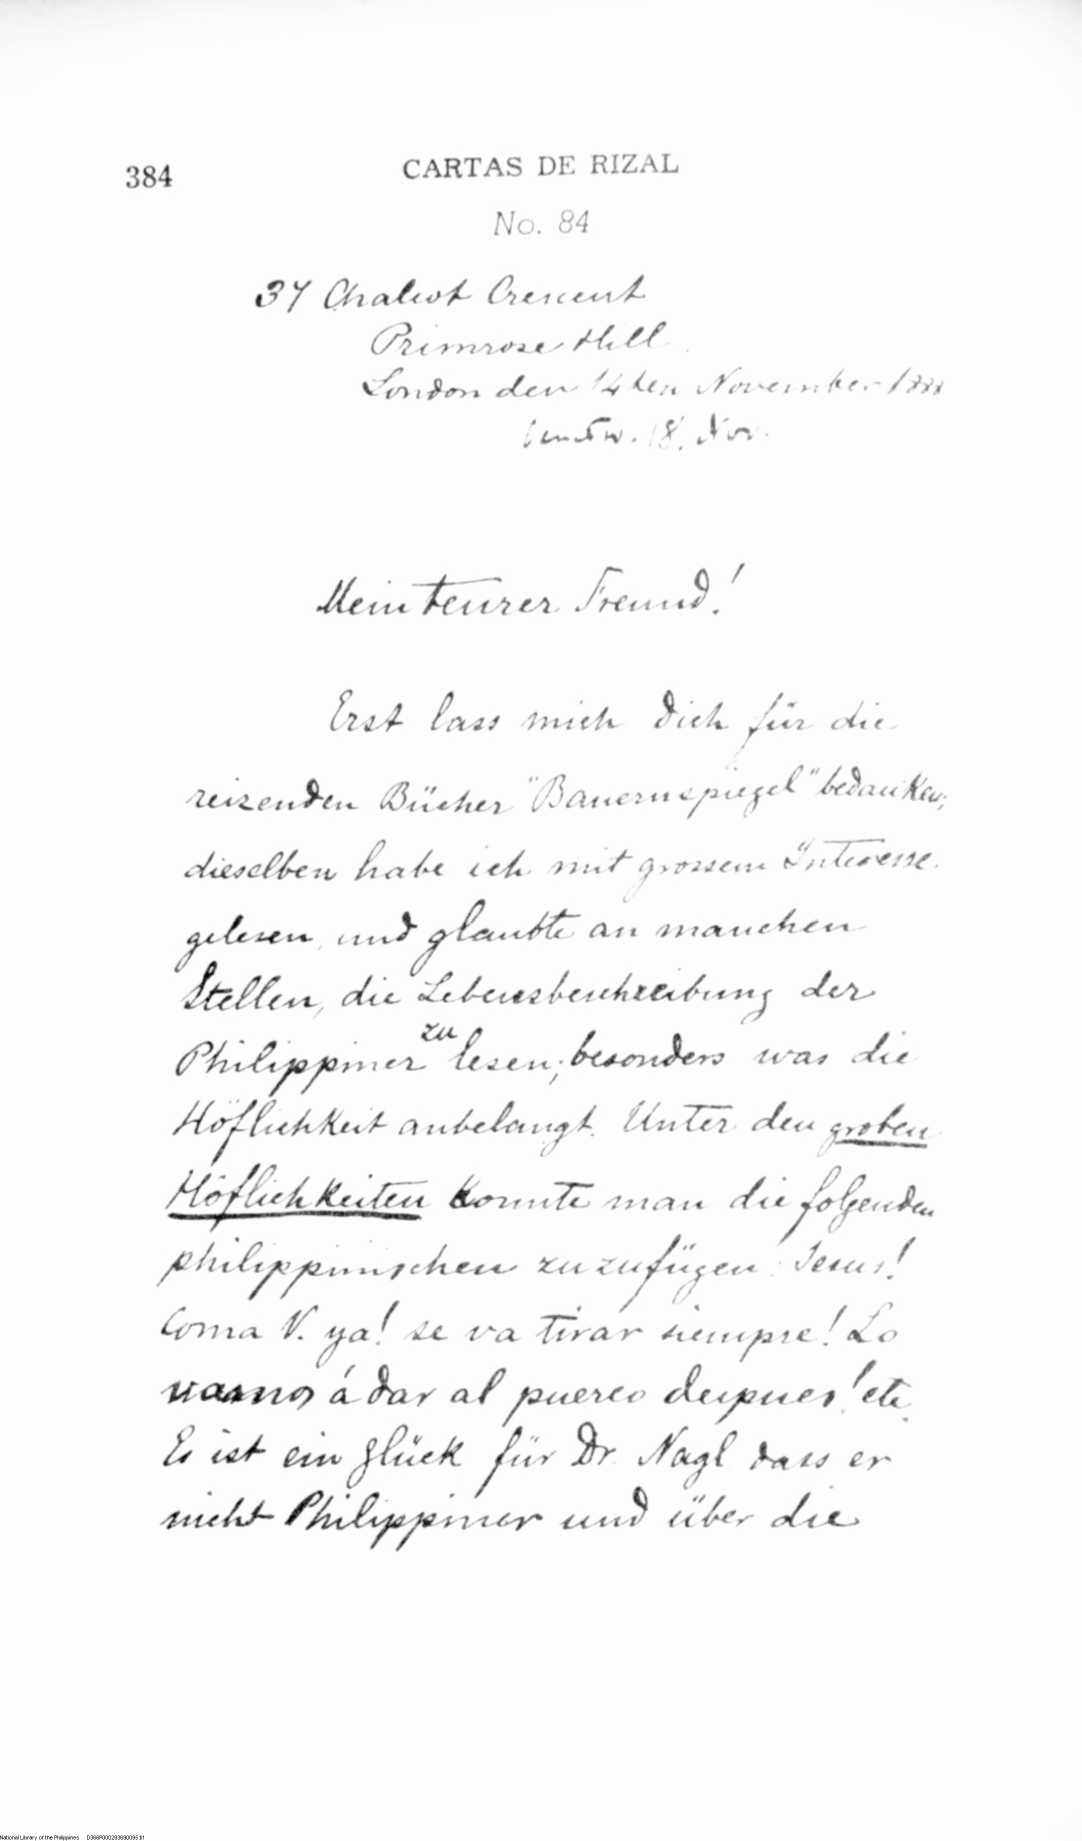 384
CARTAS DE RIZAL
No. 84
37 Chalcot Crescent
Primrose Hill
London den 14ten November 1888
18. Nov.
Mein teurer Freund!
Erst lass mich dich für die
reizenden Bücher "Bauernspiegel" bedanken;
dieselben habe ich mit grossem Interesse
gelesen, und glaubte an manchen
Stellen, die Lebensbeschreibung der
Philippiner zu lesen; besonders was die
Höflichkeit anbelangt. Unter den groben
Höflichkeiten konnte man die folgenden
philippinischen zuzufügen: Jesus!
Coma V. ya! se va tirar siempre! Lo
vamos á dar al puerco despues! etc.
Es ist ein Glück für Dr. Nagl dass er
nicht Philippiner und über die
National Library of the Philippines